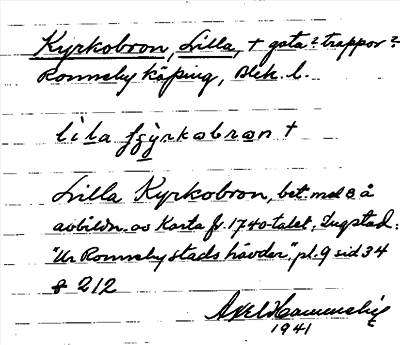 Kyrkobron, Lilla, † gata? trappor?
Ronneby köping, Blek. l.
lìla ʃγrkobron †
Lilla Kyrkobron, bet. med 8 å
avbildn. av Karta fr. 1740-talet. Ingstad:
"Ur Ronneby stads hävder" pl. 9 sid 34
& 212
Axel Hammenstig
1941